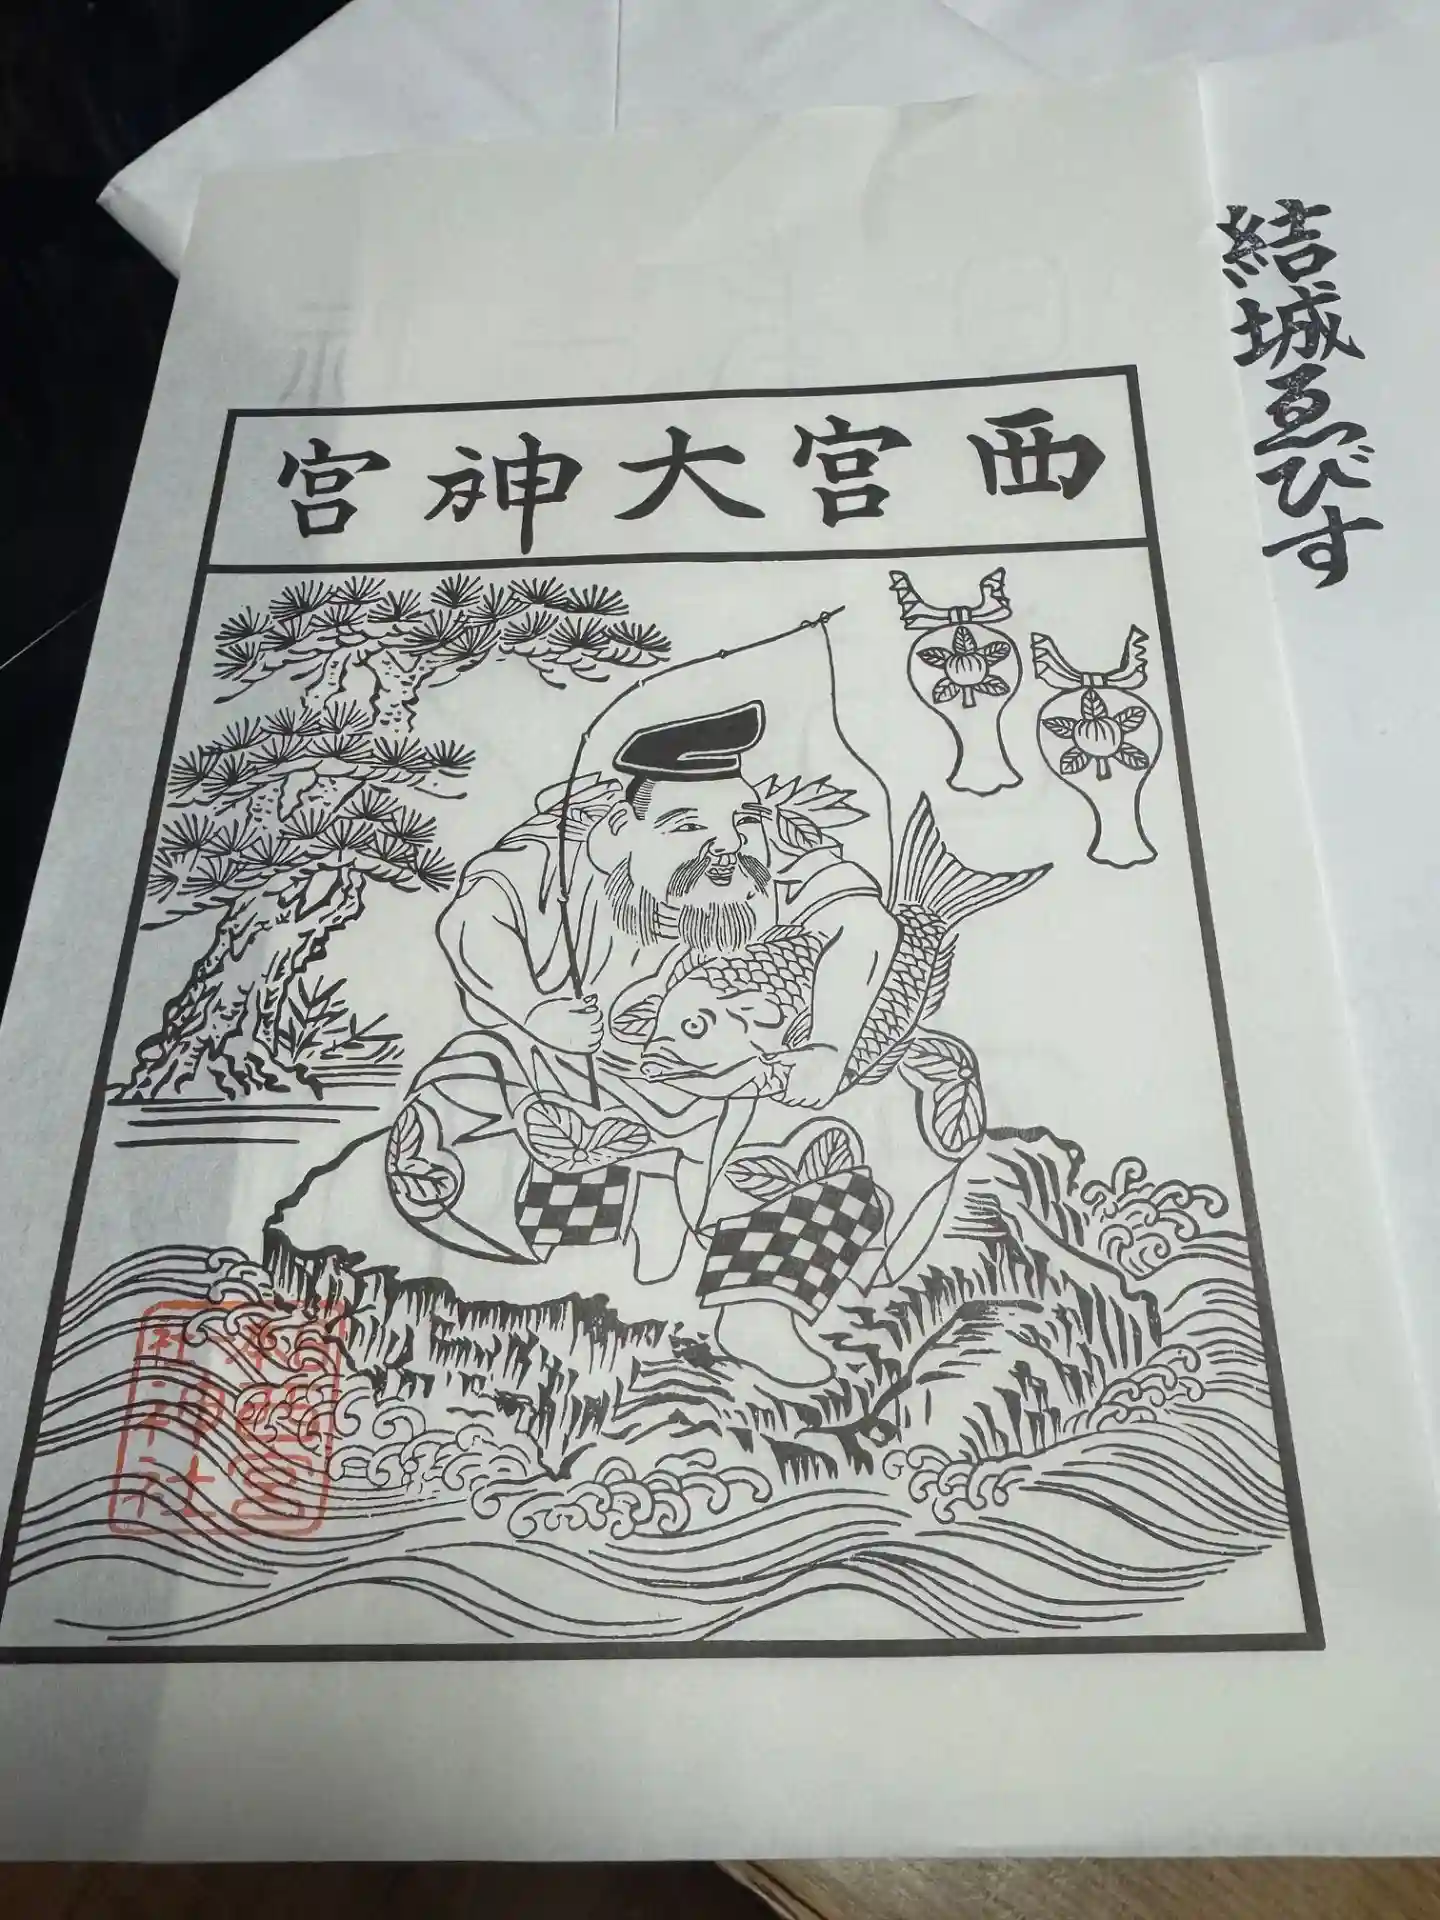 西宮大神宮
結城ゑびす